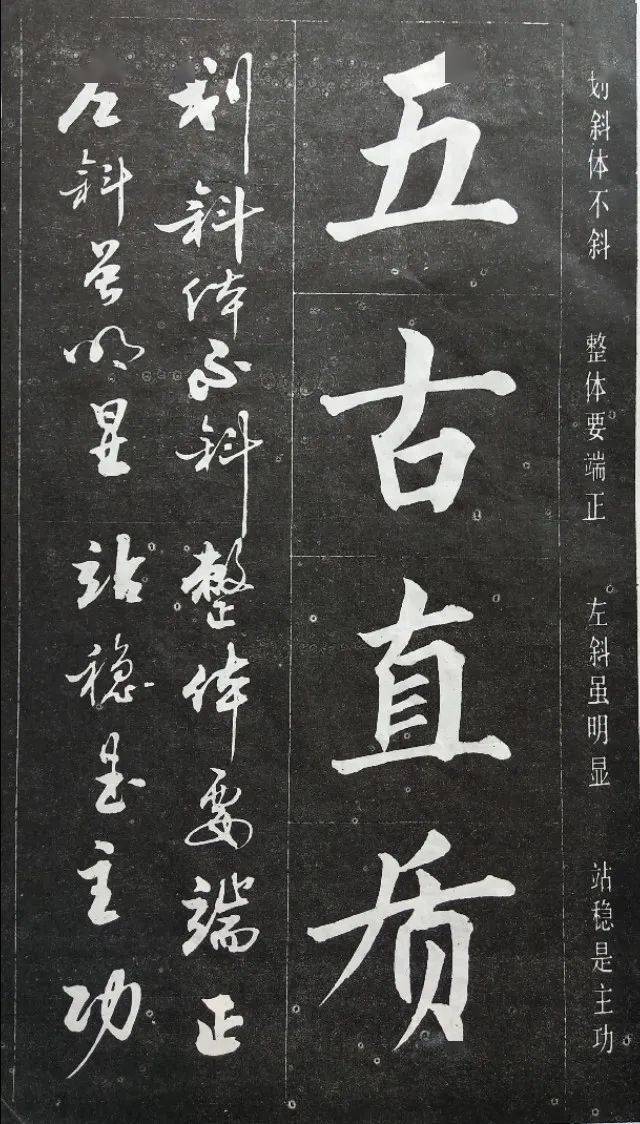 划斜体不斜 整体要端正 左斜虽明显 站稳是主功
五古直质
划斜体不斜整体要端正
左斜虽明显 站稳是主功